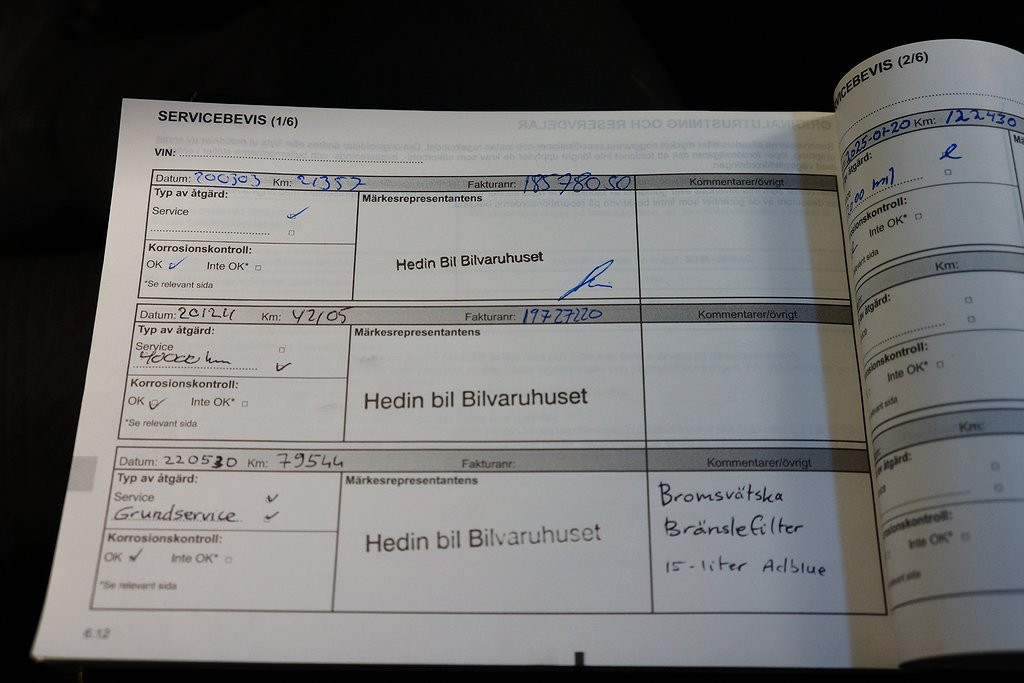 SERVICEBEVIS (1/6)
VIN:
Datum: 200303 Km: 21357 Fakturanr: 18578050 Kommentarer/övrigt
Typ av åtgärd:
Service
Märkesrepresentantens
Hedin Bil Bilvaruhuset
Korrosionskontroll:
OK Inte OK*
*Se relevant sida
Datum: 201124 Km: 42105 Fakturanr: 19727220 Kommentarer/övrigt
Typ av åtgärd:
Service
40000 km
Märkesrepresentantens
Hedin bil Bilvaruhuset
Korrosionskontroll:
OK Inte OK*
*Se relevant sida
Datum: 220530 Km: 79544 Fakturanr: Kommentarer/övrigt
Typ av åtgärd:
Service
Grundservice
Märkesrepresentantens
Hedin bil Bilvaruhuset
Bromsvätska
Bränslefilter
15-liter Adblue
Korrosionskontroll:
OK Inte OK*
*Se relevant sida
6.12
VICEBEVIS (2/6)
2025-07-20 Km: 122430
tgärd:
osionskontroll:
Inte OK*
evant sida
Km:
av åtgärd:
ce
osionskontroll:
Inte OK*
evant sida
Km:
av åtgärd:
ce
osionskontroll:
Inte OK*
evant sida